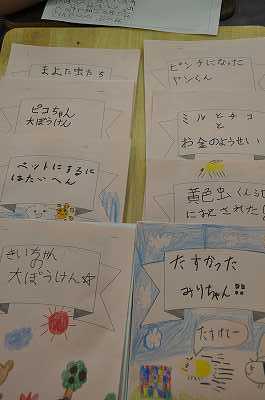 まよた虫たち
ピンチになった
ヤンくん
ピコちゃん
大ぼうけん
ミルとチョコ
と
お金のようせい
ペットにするに
はたいへん
黄色虫くん
に記された
きいちゃん
の
大ぼうけん☆
たすかった
みりちゃん!!
たすけてー